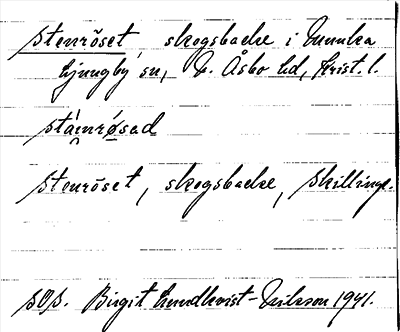 Stenröset, skogsbacke i Munka
Ljungby sn, N. Åsbo hd, Krist. l.
stá̂inrǿsad
Stenröset, skogsbacke, Skillinge.
SOS. Birgit Lundkvist-Nilsson 1941.